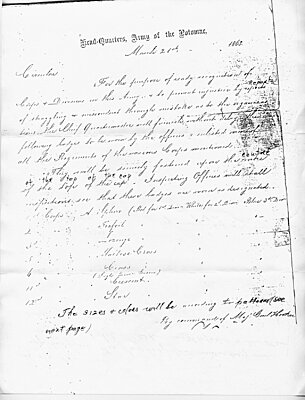 Head-Quarters, Army of the Potomac,
March 21st, 1863
Circular
For the purpose of ready recognition of
Corps & Divisions in the Army, & to prevent injustice by reports
of straggling & misconduct through mistake as to the organizations
the Chief Quartermaster will furnish without delay the
following badges to be worn by the officers & enlisted men of
all the Regiments of the various Corps mentioned.
They will be securely fastened upon the centre
of the top of the cap. Inspecting Officers will at all
inspections see that these badges are worn as designated.
1st Corps A Sphere (Red for 1st Div. White for 2d Div. Blue 3d Div.
2 " Trefoil "
3 " "
5 " "
6 " Cross
(Light Green)
11 " Crescent
12 " Star
The sizes & colors will be according to pattern (see
next page)
By command of Maj. Genl Hooker